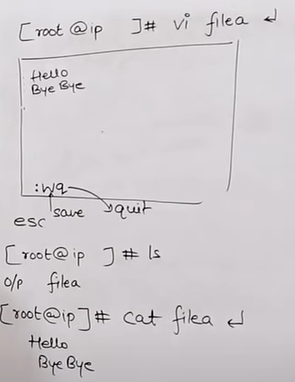 [root @ip ]# vi filea ↵
Hello
Bye Bye
:wq
esc save quit
[root@ip ] # ls
o/p filea
[root@ip]# cat filea ↵
Hello
Bye Bye